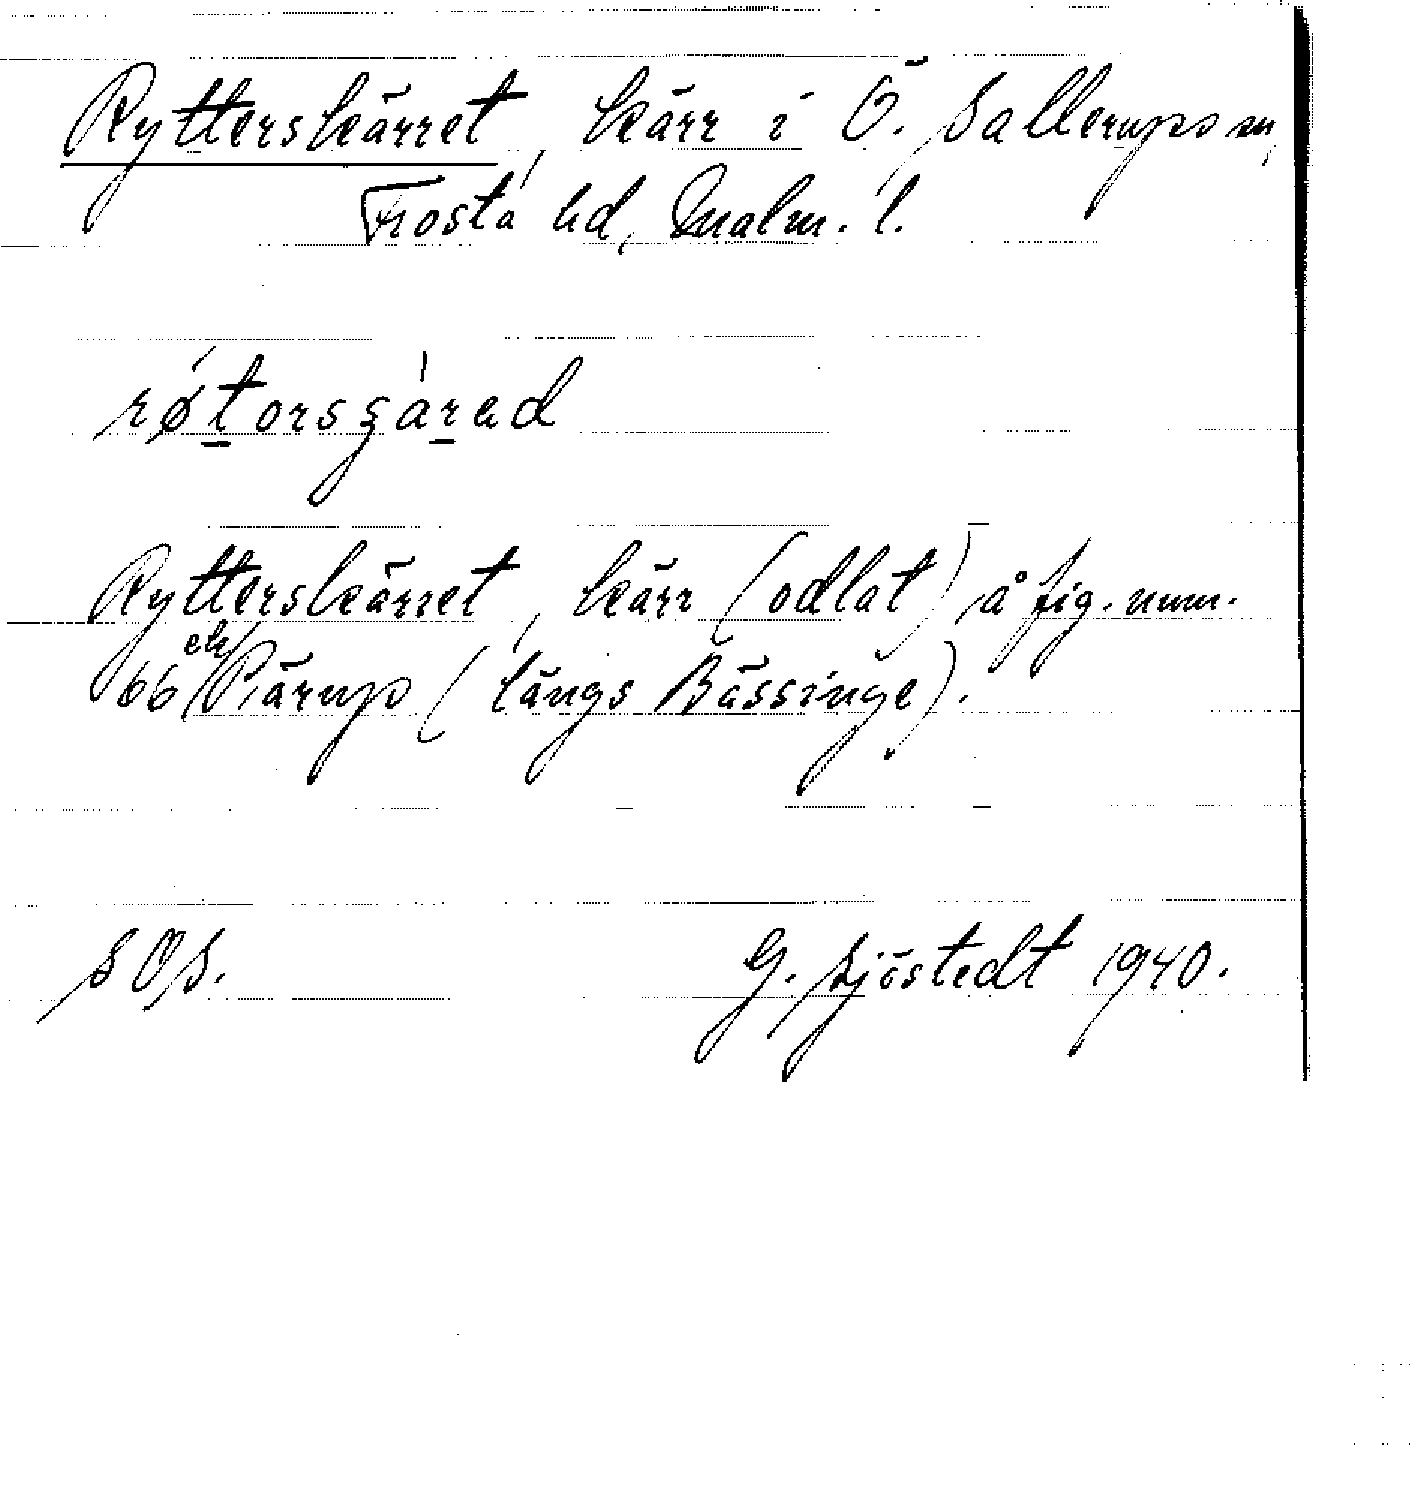 Rytterskärret, kärr i Ö. Sallerups sn,
Frosta hd, Malm. l.
røtorsʒárad
Rytterskärret, kärr (odlat) å fig. num.
66 Pärup (längs Bässinge).
SOS.
G. Sjöstedt 1940.